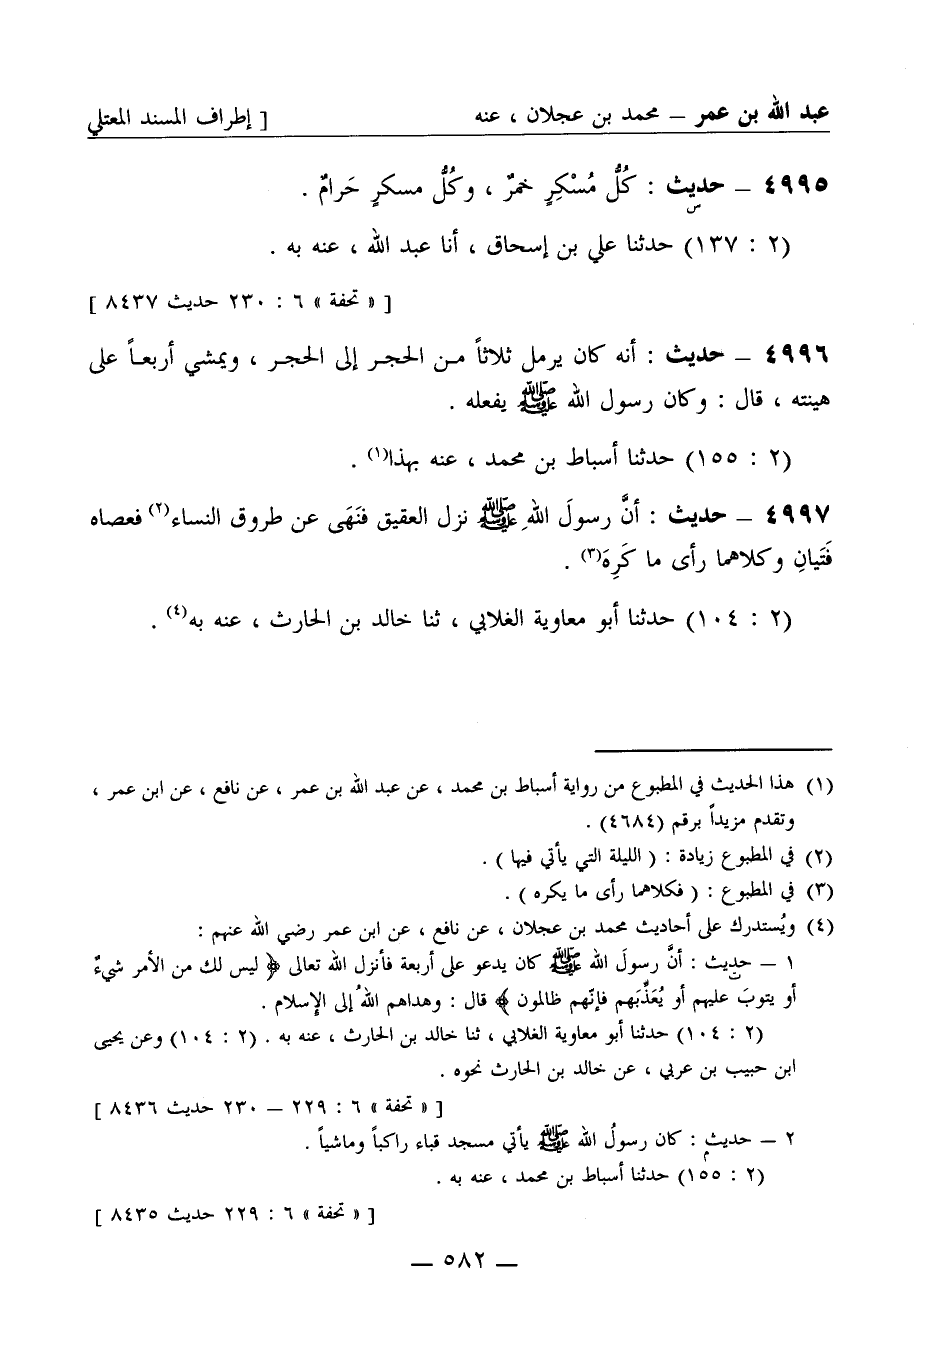 عبد الله بن عمر – محمد بن عجلان ، عنه [ إطراف المسند المعتلي
٤٩٩٥ – حديث : كُلُّ مُسْكِرٍ خمرٌ ، وكُلُّ مسكرٍ حَرامٌ .
س
(٢ : ١٣٧) حدثنا علي بن إسحاق ، أنا عبد الله ، عنه به .
[ « تحفة » ٦ : ٢٣٠ حديث ٨٤٣٧ ]
٤٩٩٦ – حديث : أنه كان يرمل ثلاثاً من الحجر إلى الحجر ، ويمشي أربعاً على
هينته ، قال : وكان رسول الله ﷺ يفعله .
(٢ : ١٥٥) حدثنا أسباط بن محمد ، عنه بهذا(١) .
٤٩٩٧ – حديث : أنَّ رسولَ اللهِ ﷺ نزل العقيق فنَهَى عن طروق النساء(٢) فعصاه
فَتَيانِ وكلاهما رأى ما كَرِهَ(٣) .
(٢ : ١٠٤) حدثنا أبو معاوية الغلابي ، ثنا خالد بن الحارث ، عنه به(٤) .
(١) هذا الحديث في المطبوع من رواية أسباط بن محمد ، عن عبد الله بن عمر ، عن نافع ، عن ابن عمر ،
وتقدم مزيداً برقم (٤٦٨٤) .
(٢) في المطبوع زيادة : ( الليلة التي يأتي فيها ) .
(٣) في المطبوع : ( فكلاهما رأى ما يكره ) .
(٤) ويُستدرك على أحاديث محمد بن عجلان ، عن نافع ، عن ابن عمر رضي الله عنهم :
١ – حديث : أنَّ رسولَ الله ﷺ كان يدعو على أربعة فأنزل الله تعالى ﴿ ليس لك من الأمر شيءٌ
ت
أو يتوبَ عليهم أو يُعَذِّبَهم فإنّهم ظالمون ﴾ قال : وهداهم اللهُ إلى الإسلام .
(٢ : ١٠٤) حدثنا أبو معاوية الغلابي ، ثنا خالد بن الحارث ، عنه به . (٢ : ١٠٤) وعن يحيى
ابن حبيب بن عربي ، عن خالد بن الحارث نحوه .
[ « تحفة » ٦ : ٢٢٩ – ٢٣٠ حديث ٨٤٣٦ ]
٢ – حديث : كان رسولُ الله ﷺ يأتي مسجد قباء راكباً وماشياً .
م
(٢ : ١٥٥) حدثنا أسباط بن محمد ، عنه به .
[ « تحفة » ٦ : ٢٢٩ حديث ٨٤٣٥ ]
– ٥٨٢ –